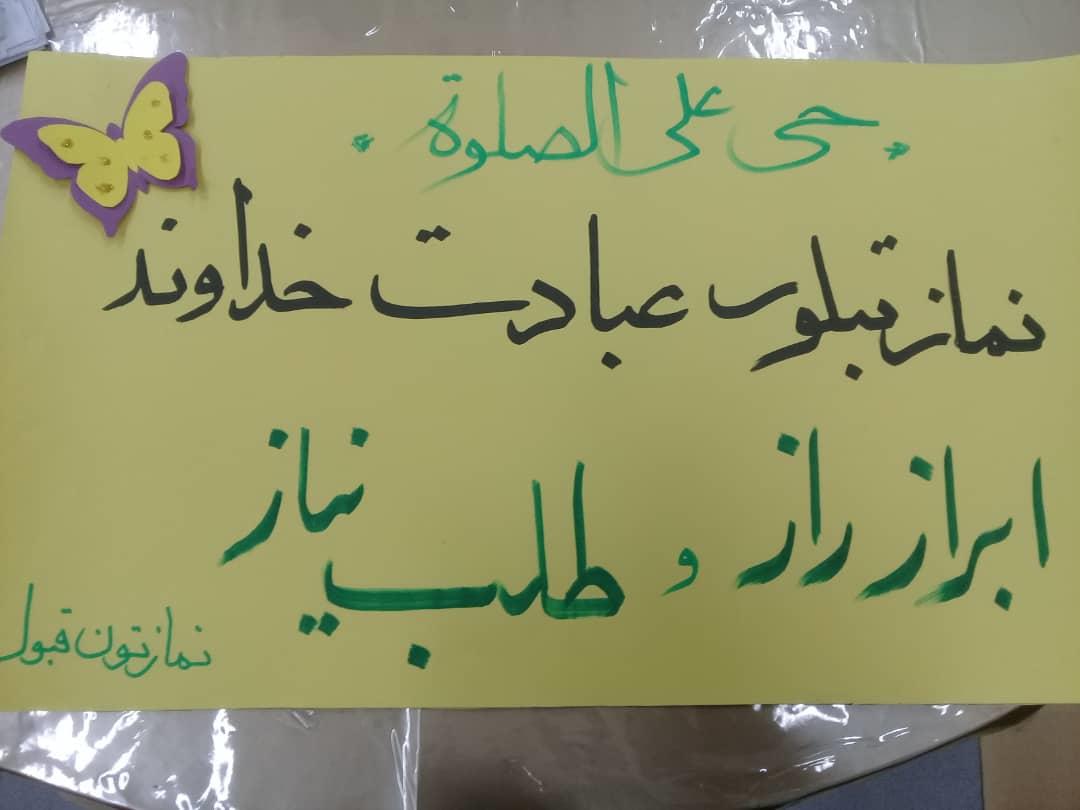 حی علی الصلوة
نماز تبلور عبادت خداوند
ابراز راز و طلب نیاز
نمازتون قبول